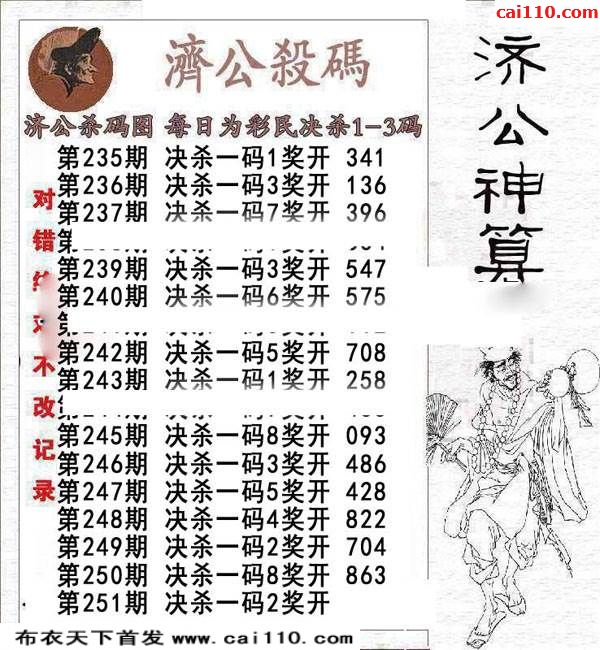 cai110.com
濟公殺碼
济公杀码图 每日为彩民决杀1-3码
第235期 决杀一码1奖开 341
第236期 决杀一码3奖开 136
第237期 决杀一码7奖开 396
第239期 决杀一码3奖开 547
第240期 决杀一码6奖开 575
第242期 决杀一码5奖开 708
第243期 决杀一码1奖开 258
第245期 决杀一码8奖开 093
第246期 决杀一码3奖开 486
第247期 决杀一码5奖开 428
第248期 决杀一码4奖开 822
第249期 决杀一码2奖开 704
第250期 决杀一码8奖开 863
第251期 决杀一码2奖开
对错 不改记录
济公神算
布衣天下首发 www.cai110.com